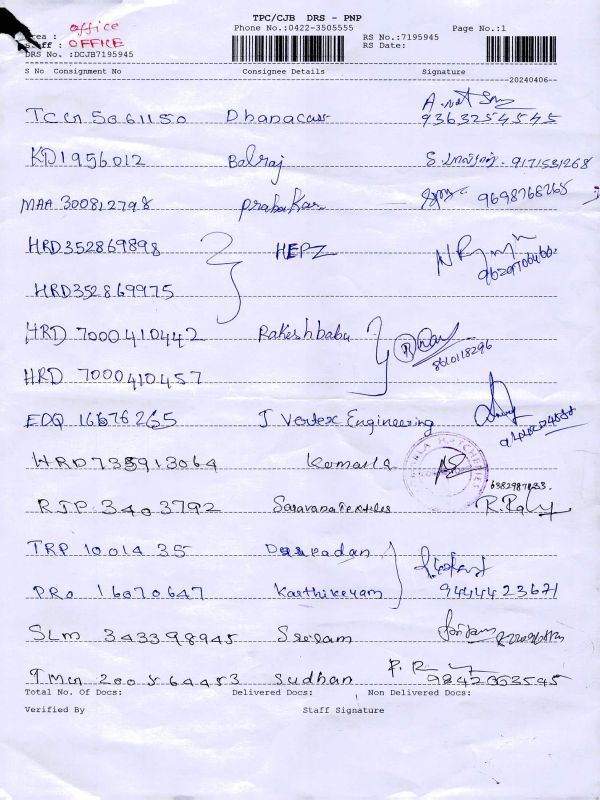 TPC/CJB DRS - PNP
Area : office Phone No.:0422-3505555 RS No.:7195945 Page No.:1
Staff : OFFICE RS Date:
DRS No. :DCJB7195945
S No Consignment No Consignee Details Signature
20240406
TCM 5061150 Dhanacaw 9363254545
KD1956012 Balraj 9171531268
MAA 300812798 Prabakar 9698768265
HRD352869898 HEPZ
HRD352869975
HRD 7000410442 Rakeshbabu
8610118296
HRD 7000410457
EDQ 16676265 J Vertex Engineering
HRD735913064 Komarla
RJP 3403792 Saravana Textiles R.
TRP 1001435
PRO 16070647 Karthikeyam 9444423671
SLM 343398945 Sriram
TMM 200564453 Sudhan 9842003545
Total No. Of Docs: Delivered Docs: Non Delivered Docs:
Verified By Staff Signature